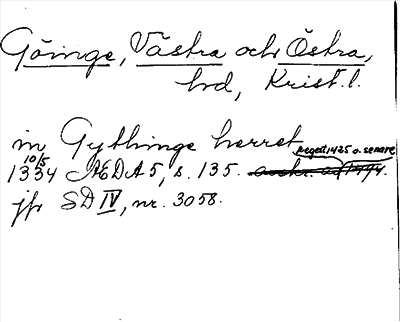 Göinge, Västra och Östra,
hd, Krist. l.
in Gythinge herret
reges 1425 o. senare
10/5
1334 ÆDA 5, s. 135. avskr. av 1494.
jfr SD IV, nr. 3058.